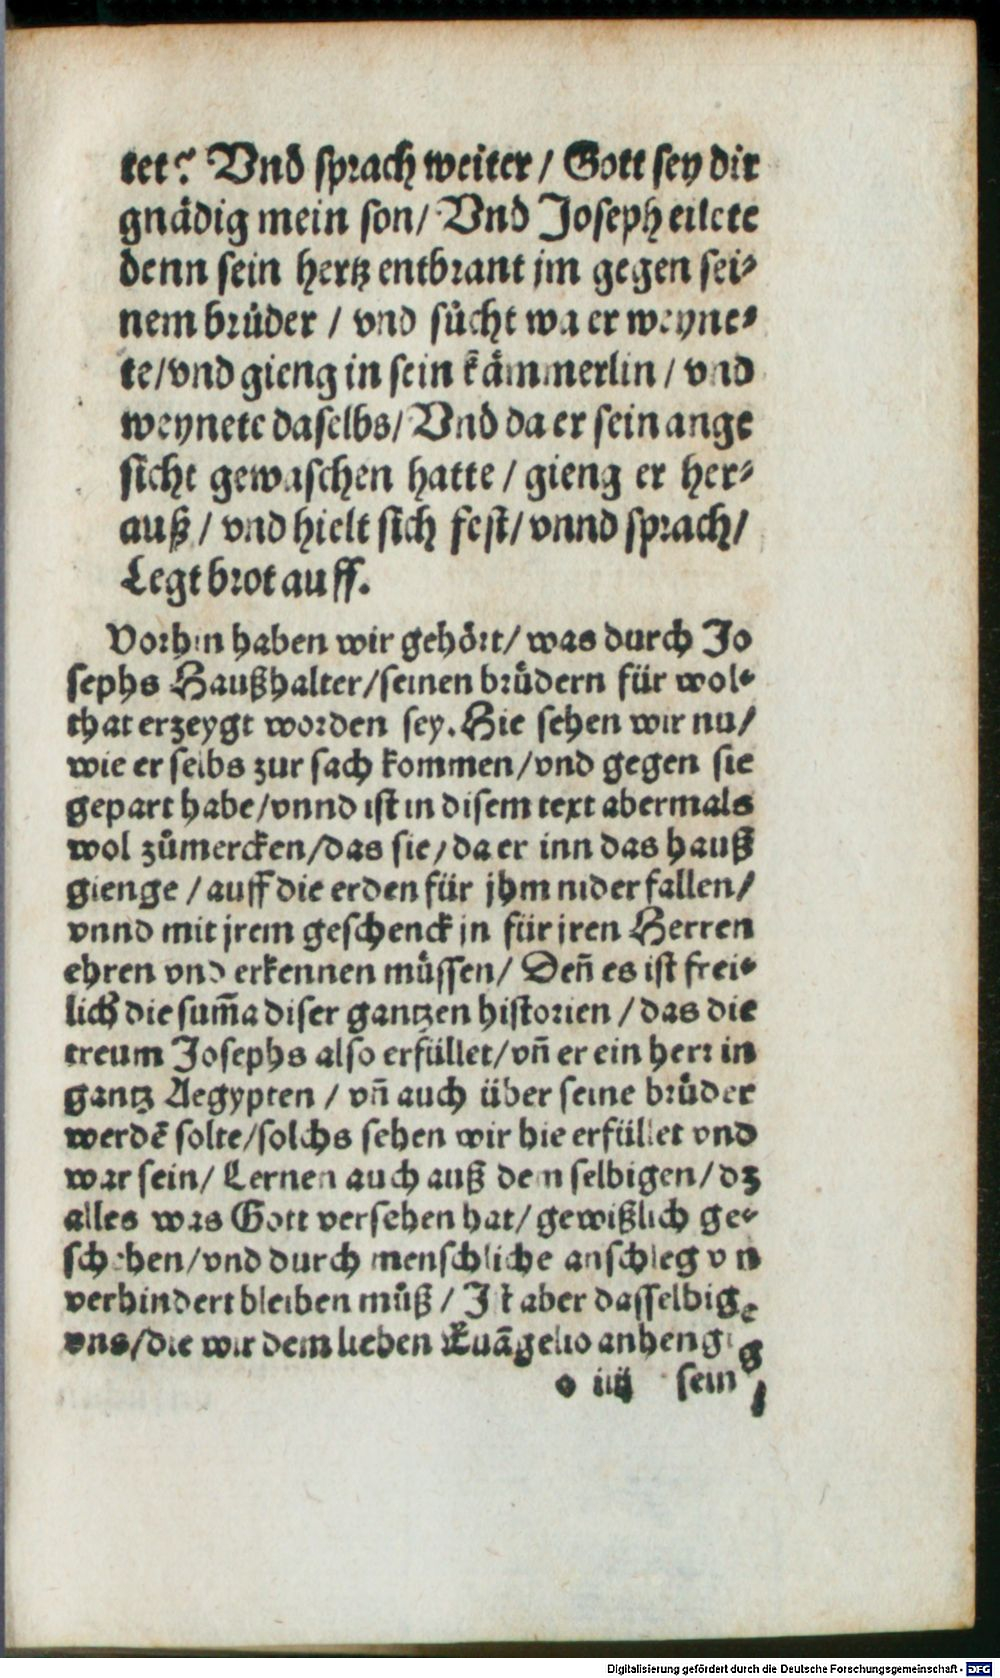 tet? Vnd sprach weiter / Gott sey dir
gnädig mein son / Vnd Joseph eilete
denn sein hertz entbrant jm gegen sei⸗
nem brůder / vnd sůcht wa er weyne⸗
te / vnd gieng in sein kämmerlin / vnd
weynete daselbs / Vnd da er sein ange
sicht gewaschen hatte / gieng er her⸗
auß / vnd hielt sich fest / vnnd sprach /
Legt brot auff.
Vorhin haben wir gehört / was durch Jo
sephs Haußhalter / seinen brůdern für wol⸗
that erzeygt worden sey. Hie sehen wir nu /
wie er selbs zur sach kommen / vnd gegen sie
gepart habe / vnnd ist in disem text abermals
wol zůmercken / das sie / da er inn das hauß
gienge / auff die erden für jhm nider fallen /
vnnd mit jrem geschenck jn für jren Herren
ehren vnd erkennen müssen / Deñ es ist frei⸗
lich die sum̃a diser gantzen historien / das die
treum Josephs also erfüllet / vñ er ein herr in
gantz Aegypten / vñ auch über seine brůder
werdẽ solte / solchs sehen wir hie erfüllet vnd
war sein / Lernen auch auß dem selbigen / dz
alles was Gott versehen hat / gewißlich ge⸗
schehen / vnd durch menschliche anschleg vn
verhindert bleiben můß / Ist aber dasselbige
vns / die wir dem lieben Euãgelio anhengig
o iiij sein
Digitalisierung gefördert durch die Deutsche Forschungsgemeinschaft - DFG